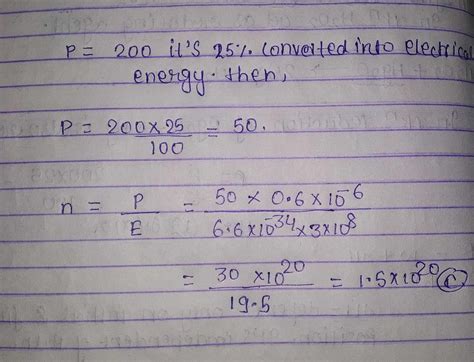 P = 200 it's 25% Converted into electrical
energy. then,
P = 200 × 25 / 100 = 50.
n = P / E = 50 × 0.6 × 10⁻⁶ / 6.6×10⁻³⁴×3×10⁸
= 30 × 10²⁰ / 19.5 = 1.5×10²⁰ (C)